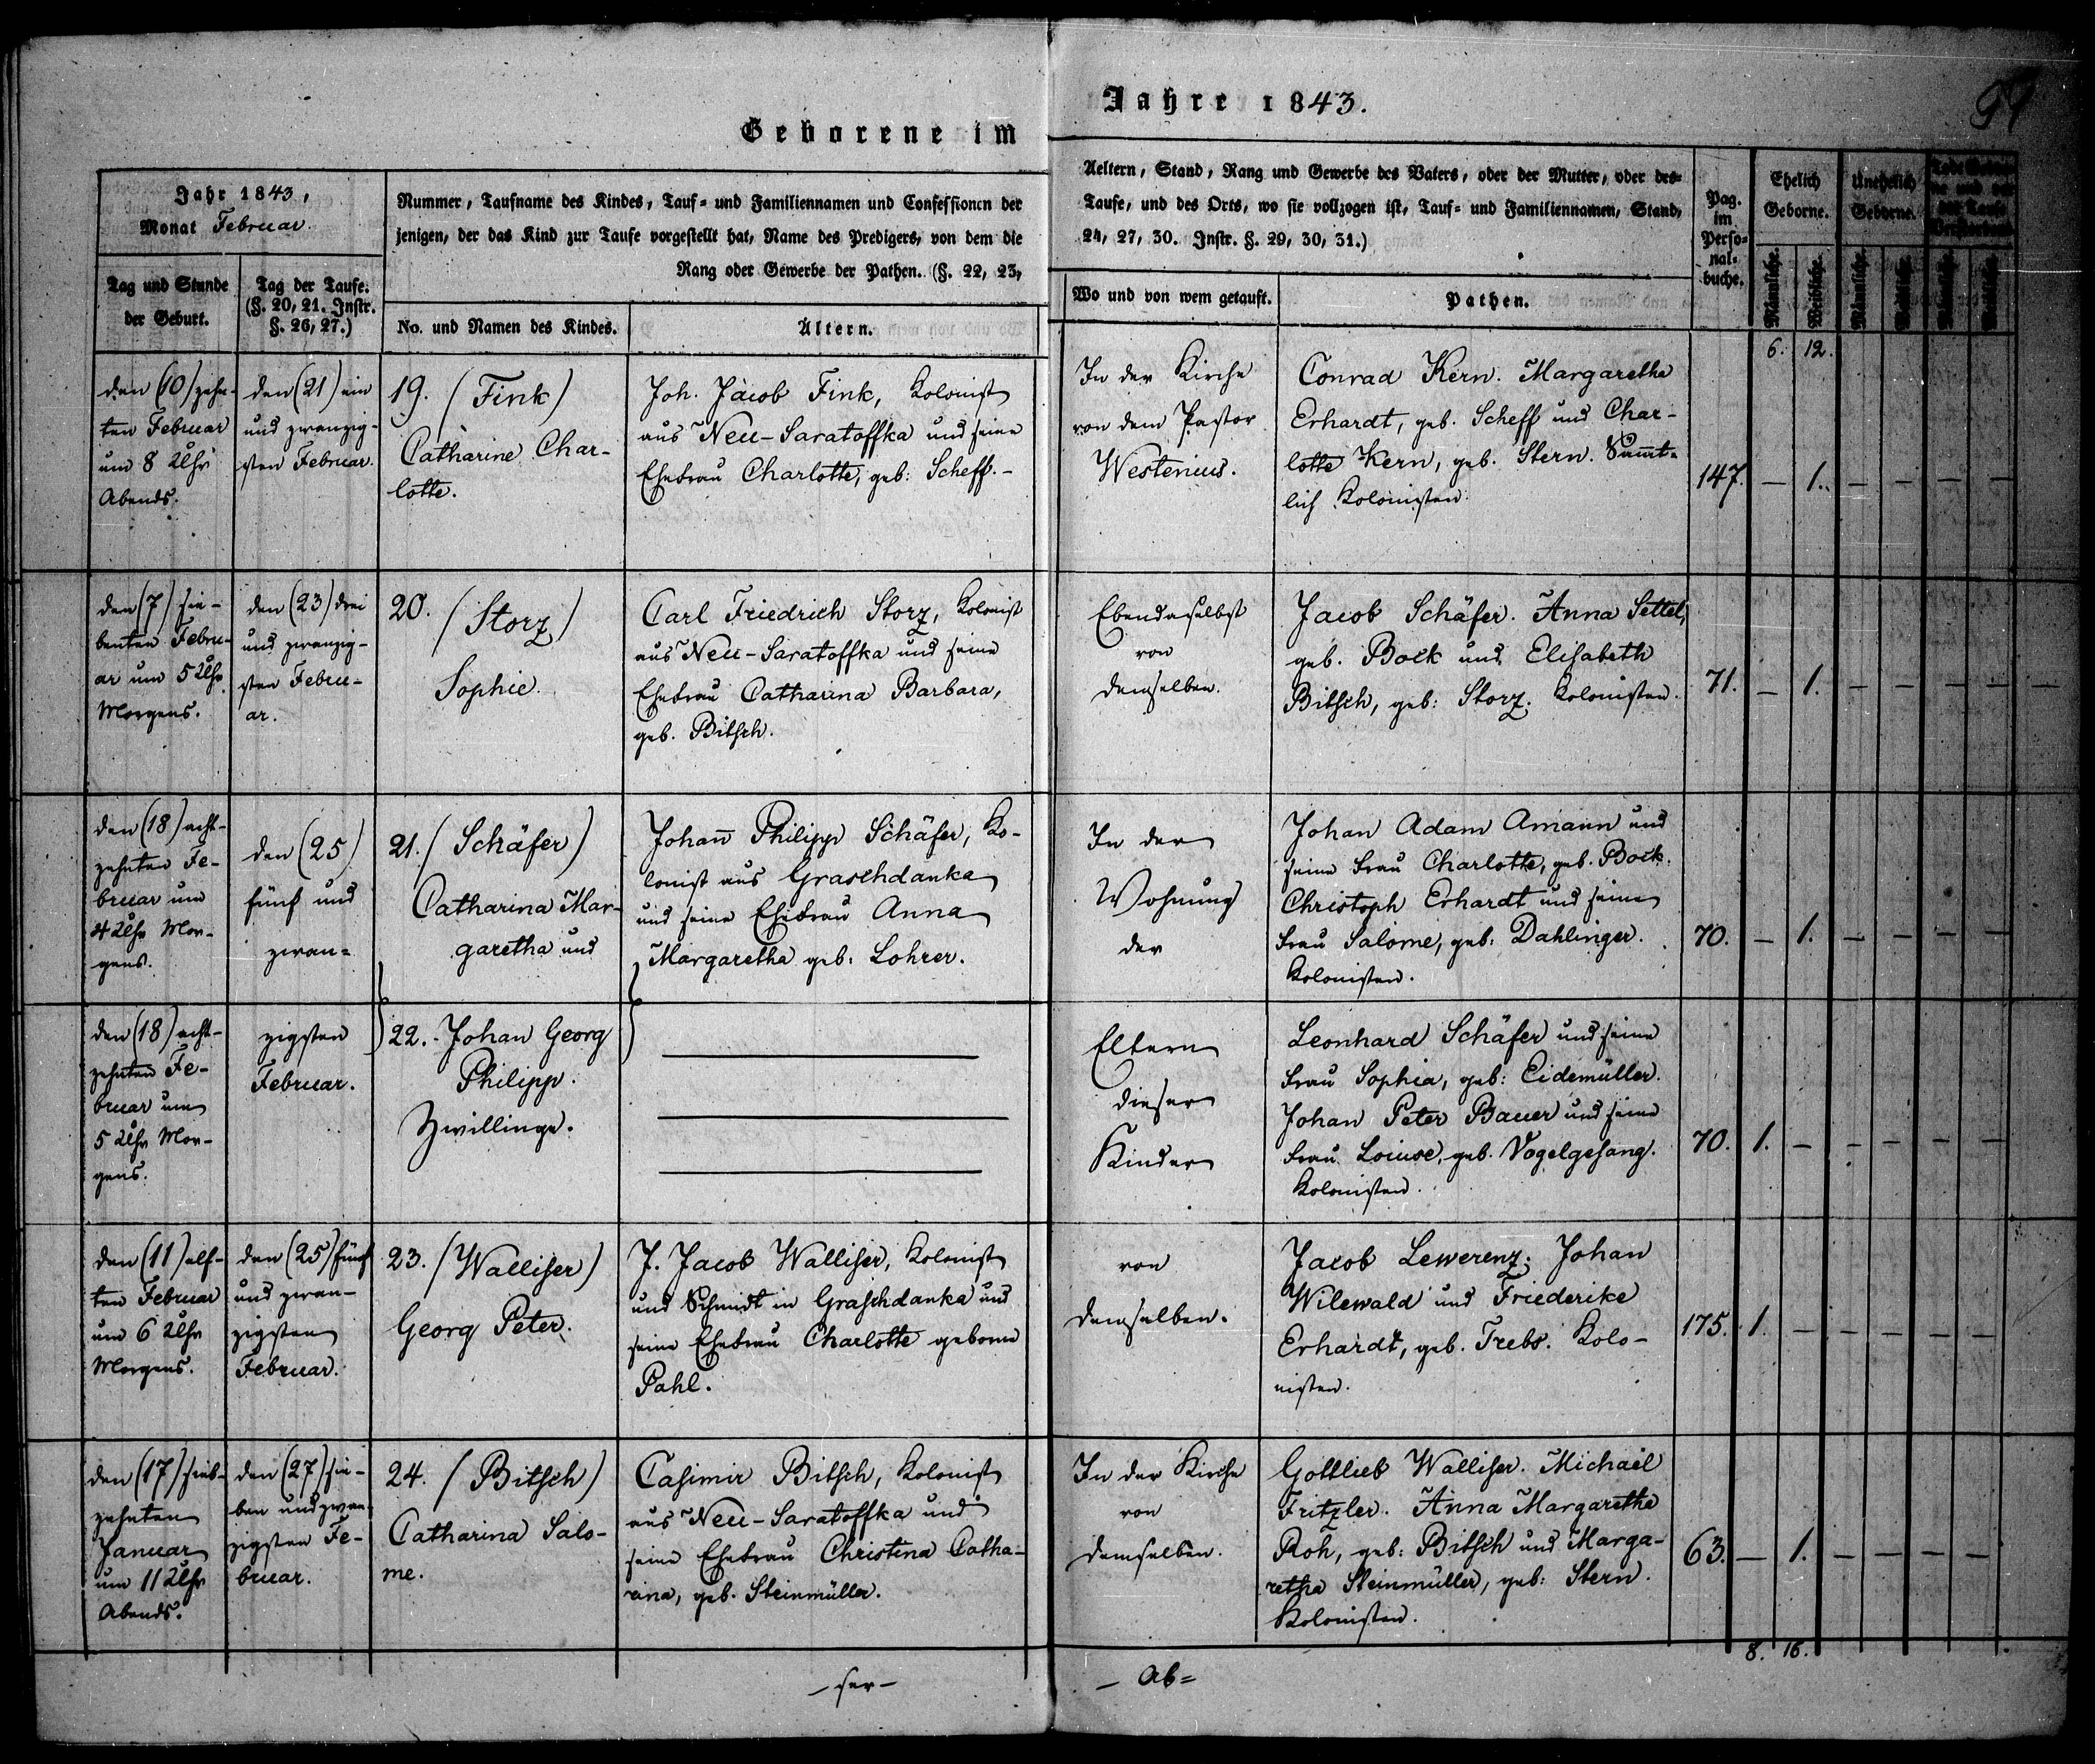 Geborene im
Jahre 1843.
Jahr 1843,
Monat Februar.
Nummer, Taufname des Kindes, Tauf- und Familiennamen und Confessionen der
jenigen, der das Kind zur Taufe vorgestellt hat, Name des Predigers, von dem die
Rang oder Gewerbe der Pathen. (§. 22, 23,
Aeltern, Stand, Rang und Gewerbe des Vaters, oder der Mutter, oder des-
Taufe, und des Orts, wo sie vollzogen ist, Tauf- und Familiennamen, Stand,
24, 27, 30. Instr. §. 29, 30, 31.)
Pag.
im
Perso-
nal-
buche.
Ehelich
Geborne.
Unehelich
Geborne.
Tag und Stunde
der Geburt.
Tag der Taufe.
(§. 20, 21. Instr.
§. 26, 27.)
No. und Namen des Kindes.
Ältern.
Wo und von wem getauft.
Pathen.
Männliche.
Weibliche.
Männliche.
Weibliche.
Männliche.
Weibliche.
6. 12.
den (10) zehn-
ten Februar
um 8 Uhr
Abends.
den (21) ein
und zwanzig-
sten Februar.
19. (Fink)
Catharine Char-
lotte.
Joh. Jacob Fink, Kolonist
aus Neu-Saratoffka und seine
Ehefrau Charlotte, geb: Scheff.-
In der Kirche
von dem Pastor
Westenius.
Conrad Kern. Margaretha
Erhardt, geb. Scheff und Char-
lotte Kern, geb. Stern. Sämt-
lich Kolonisten.
147. — 1. — — — —
den (7) sie-
benten Febru-
ar um 5 Uhr
Morgens.
den (23) drei
und zwanzig-
sten Febru-
ar.
20. (Storz)
Sophie.
Carl Friedrich Storz, Kolonist
aus Neu-Saratoffka und seine
Ehefrau Catharina Barbara,
geb. Bitsch.
Ebendaselbst
von
demselben.
Jacob Schäfer. Anna Settel,
geb. Bock und Elisabeth
Bitsch, geb: Storz. Kolonisten.
71. — 1. — — — —
den (18) acht-
zehnten Fe-
bruar um
4 Uhr Mor-
gens.
den (25)
fünf und
zwan-
21. (Schäfer)
Catharina Mar-
garetha und
Johan̄ Philipp Schäfer, Ko-
lonist aus Graschdanka
und seine Ehefrau Anna
Margaretha geb: Lohrer.
In der
Wohnung
der
Johan Adam Amann und
seine Frau Charlotte, geb. Bock.
Christoph Erhardt und seine
Frau Salome, geb: Dahlinger.
Kolonisten.
70. — 1. — — — —
den (18) acht-
zehnten Fe-
bruar um
5 Uhr Mor-
gens.
zigsten
Februar.
22. Johan Georg
Philipp.
Zwillinge.
Eltern
dieser
Kinder
Leonhard Schäfer und seine
Frau Sophia, geb: Eidemüller.
Johan Peter Bauer und seine
Frau Louise, geb. Vogelgesang.
Kolonisten.
70. 1. — — — — —
den (11) elf-
ten Februar
um 6 Uhr
Morgens.
den (25) fünf
und zwan-
zigsten
Februar.
23. (Walliser)
Georg Peter.
J. Jacob Walliser, Kolonist
und Schmidt in Graschdanka und
seine Ehefrau Charlotte geborne
Pahl.
von
demselben.
Jacob Lewerenz. Johan
Wilewald und Friederike
Erhardt, geb. Trebs. Kolo-
nisten.
175. 1. — — — — —
den (17) sieb-
zehnten
Januar
um 11 Uhr
Abends.
den (27) sie-
ben und zwan-
zigsten Fe-
bruar.
24. (Bitsch)
Catharina Salo-
me.
Casimir Bitsch, Kolonist
aus Neu-Saratoffka und
seine Ehefrau Christina Catha-
rina, geb. Steinmüller.
In der Kirche
von
demselben.
Gottlieb Walliser. Michael
Fritzler. Anna Margaretha
Roh, geb: Bitsch und Marga-
retha Steinmüller, geb: Stern.
Kolonisten.
63. — 1. — — — —
8. 16.
— Ab=